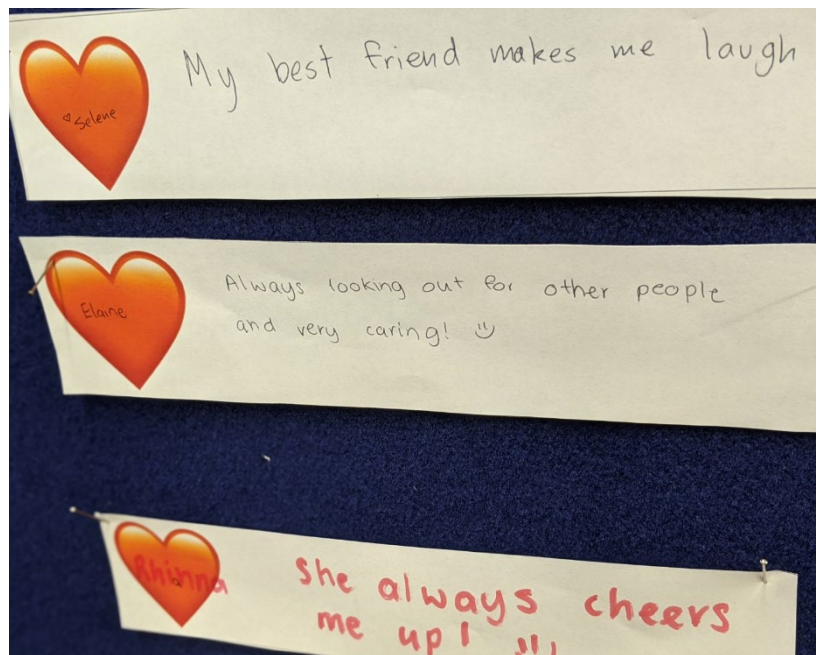 Selene
My best friend makes me laugh
Elaine
Always looking out for other people
and very caring!
Rhinna
She always cheers
me up!